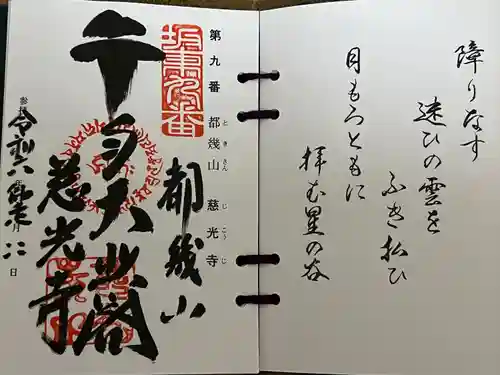 障りなす
迷ひの雲を
ふき払ひ
月もろともに
拝む星の谷
第九番 都幾山 慈光寺
ときさん じこうじ
坂東第九番
都幾山
千手大悲閣
慈光寺
令和六年
日